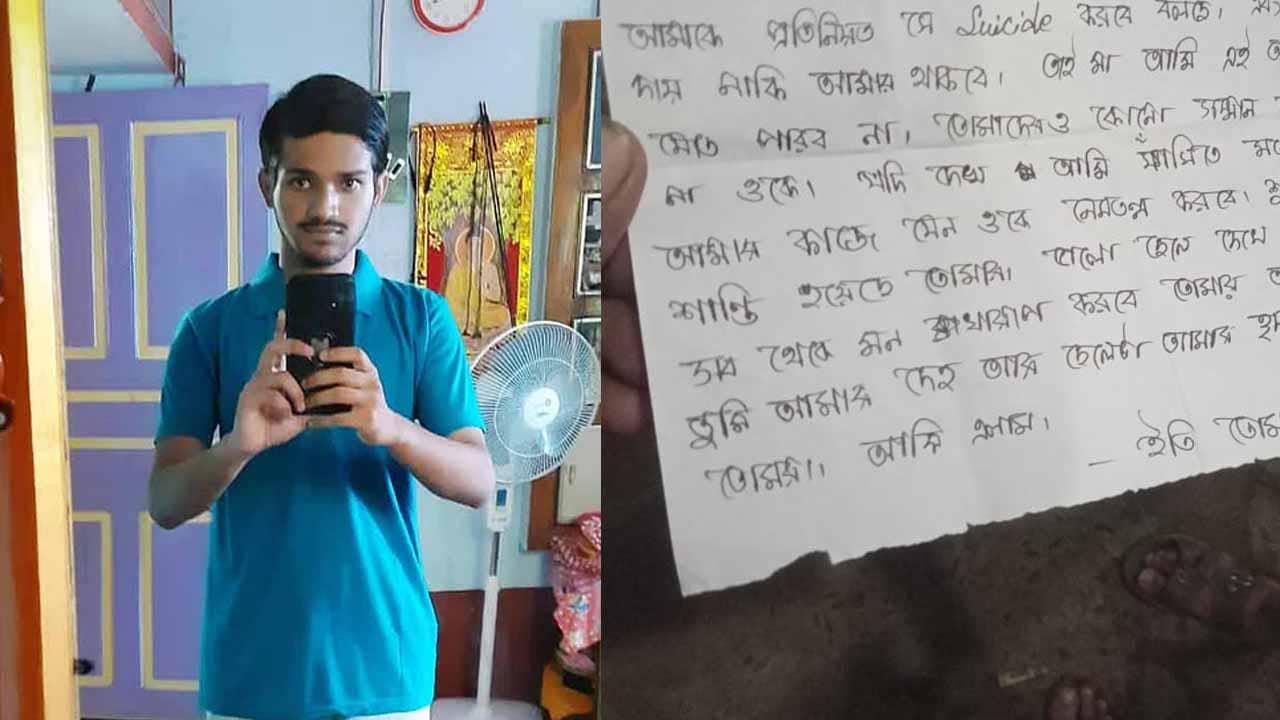 আমাকে প্রতিনিয়ত সে Suicide করবে বলছে।
দায় নাকি আমার থাকবে। তাই মা আমি এই
পারব না। তোমাদেরও কোনো সম্মান
না ওকে। যদি দেখ আমি ফাঁসিতে
আমার কাজে যেন ওকে নেমতন্ন করবে।
শান্তি হয়েছে তোমার। ভালো ছেলে দেখে
থেকে মন খারাপ করবে তোমার
তুমি আমার দেহ আর ছেলেটা আমার
আমি এলাম।
— ইতি